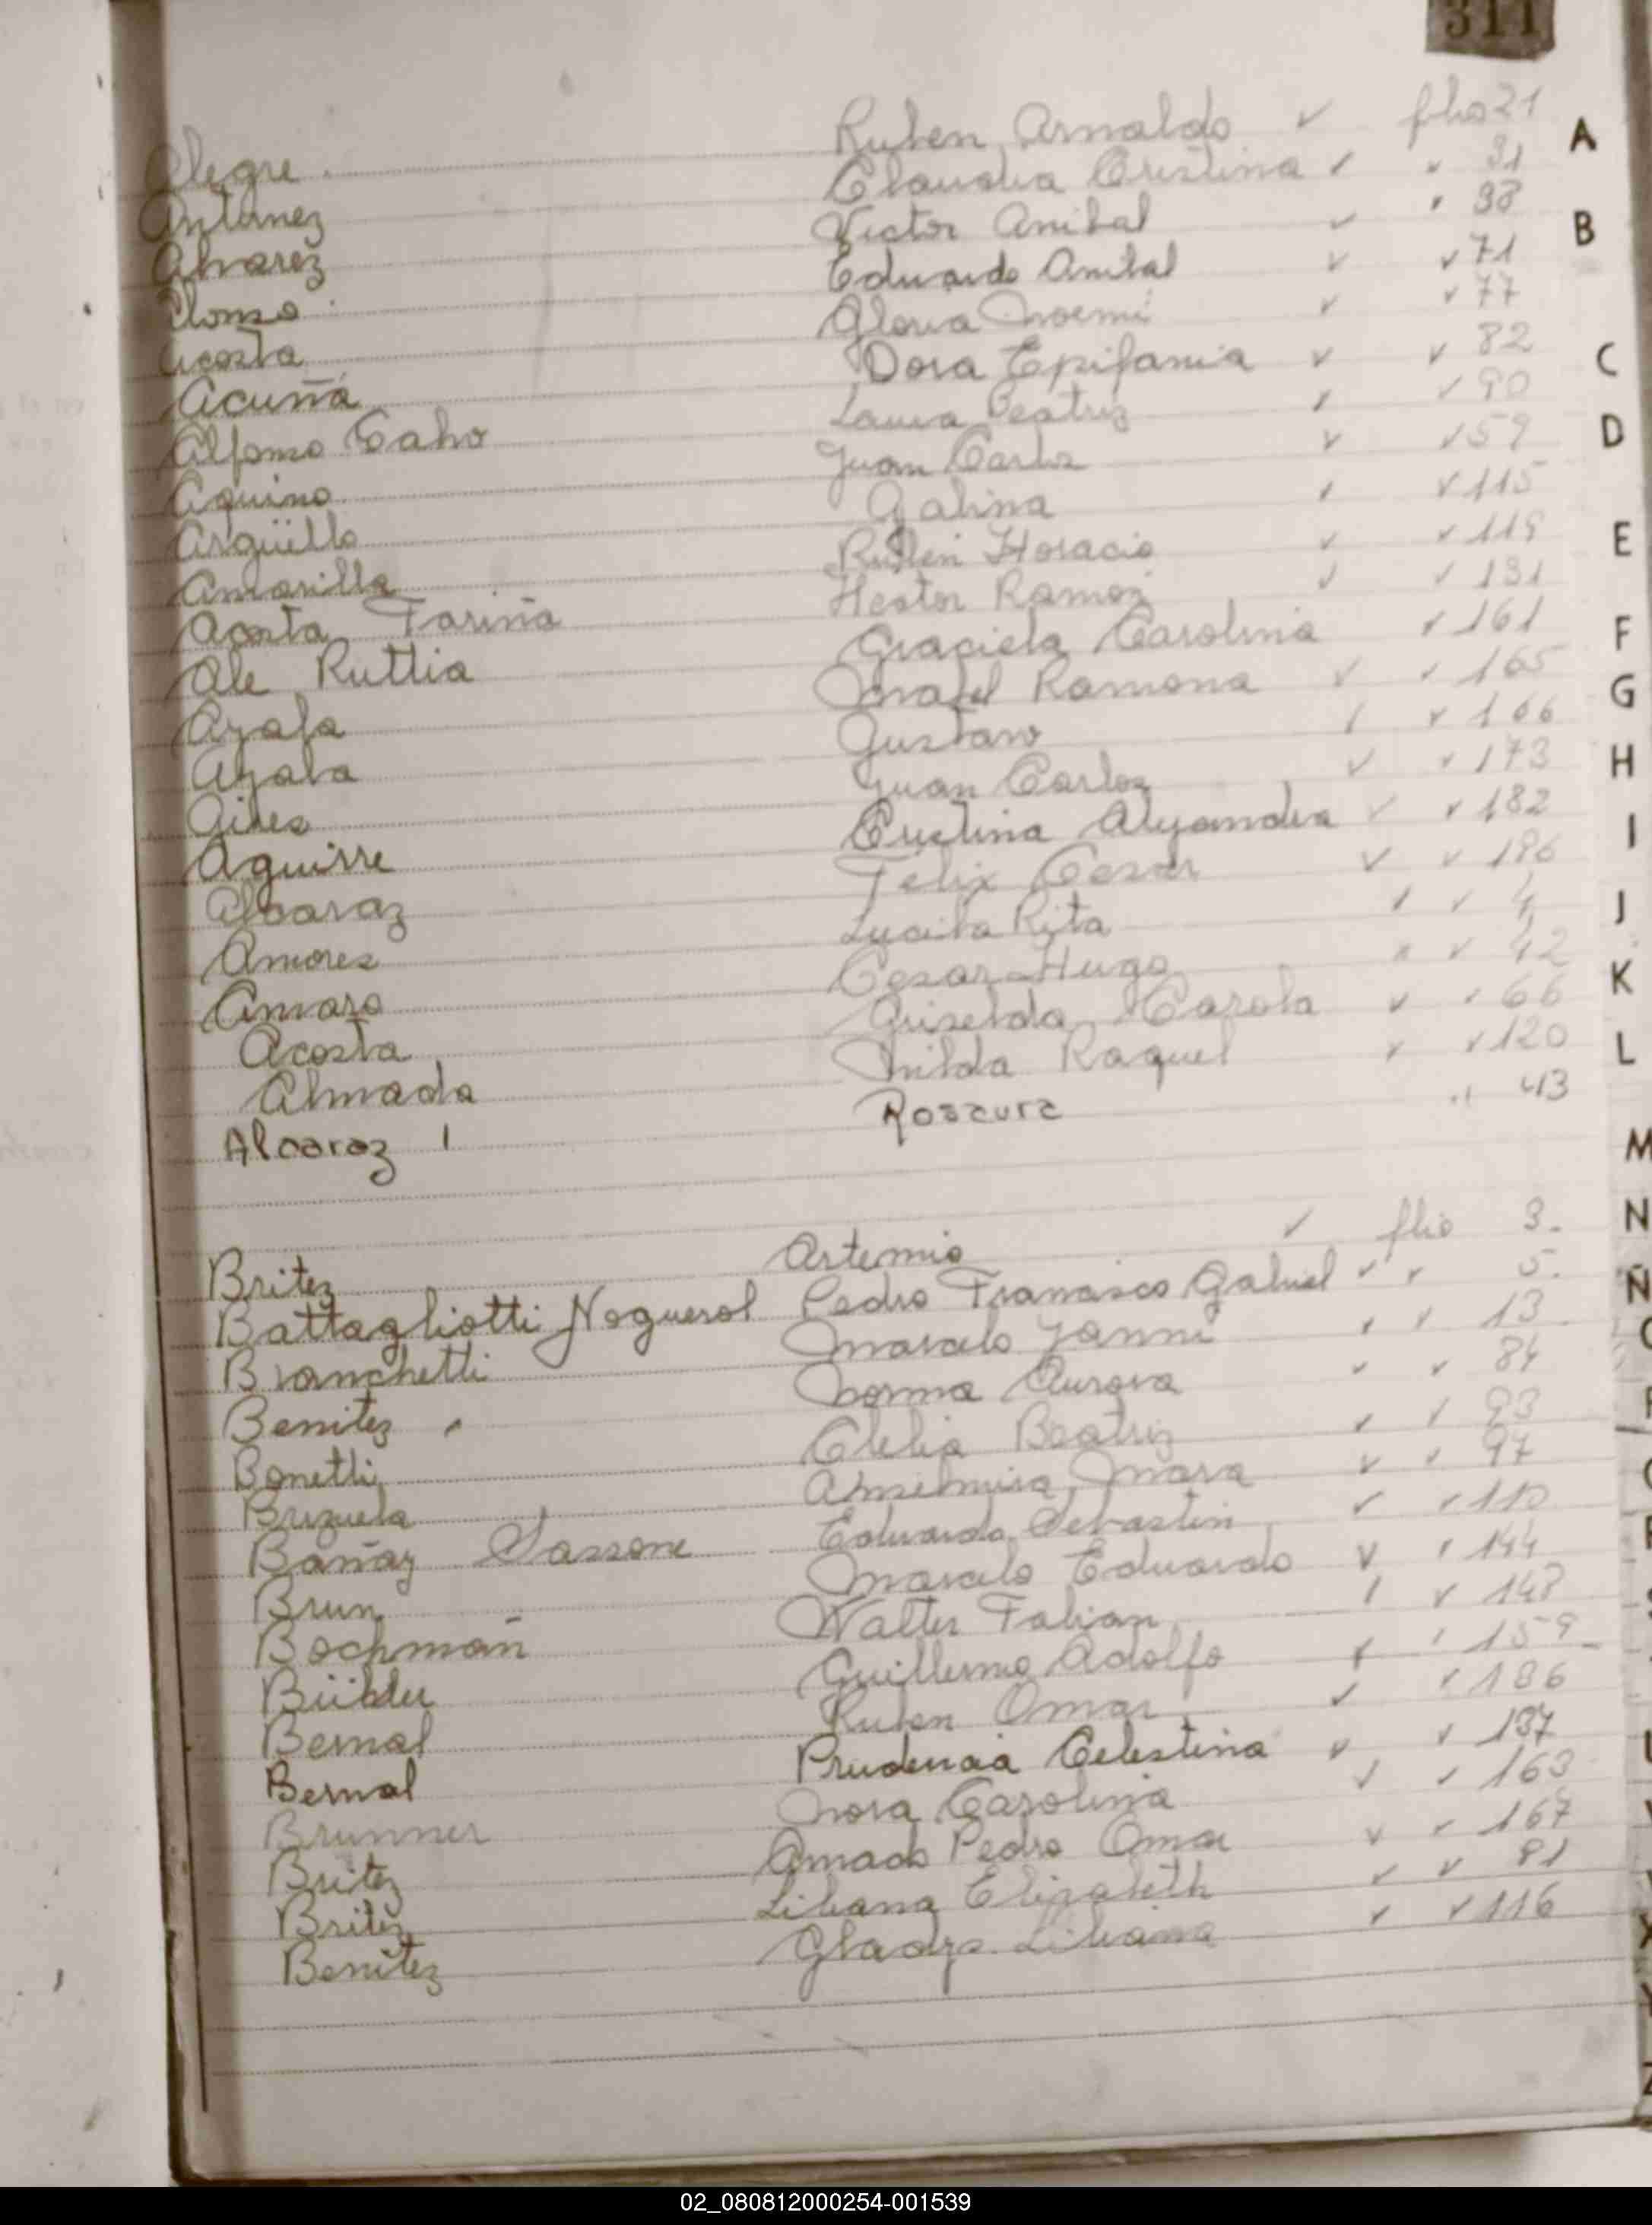 311
Alegre Ruben Arnaldo folio 21
Antunez Claudia Cristina " 31
Alvarez Victor Anibal " 38
Alonso Eduardo Anibal " 71
Acosta Gloria Noemi " 77
Acuña Dora Epifania " 82
Alfonso Calvo Laura Beatriz " 90
Aquino Juan Carlos " 59
Argüello Galina " 115
Amarilla Ruben Horacio " 119
Acosta Fariña Hector Ramon " 131
Ale Ruttia Graciela Carolina " 161
Ayala Ramona " 165
Ayala Gustavo " 166
Aires Juan Carlos " 173
Aguirre Cristina Alejandra " 182
Alcaraz Felix Cesar " 186
Amores Lucila Rita " 4
Amaro Cesar Hugo " 42
Acosta Griselda Carola " 66
Almada Nilda Raquel " 120
Alcaraz Rosaura " 43
Britez Artemio folio 3.
Battagliotti Noguerol Pedro Francisco Gabriel " 5.
Branchetti Marcelo Yanni " 13
Benitez Norma Aurora " 84
Bonetti Clelia Beatriz " 93
Brizuela Anselmira Mara " 97
Bañay Sassone Eduardo Sebastin " 110
Brun Marcelo Eduardo " 144
Bochman Walter Fabian " 148
Bübler Guillermo Adolfo " 159
Bernal Ruben Omar " 186
Bernal Prudencia Celestina " 137
Brunner Nora Carolina " 163
Britez Amado Pedro Omar " 167
Britez Liliana Elizabeth " 81
Benitez Gladys Liliana " 116
A
B
C
D
E
F
G
H
I
J
K
L
M
N
Ñ
02_080812000254-001539